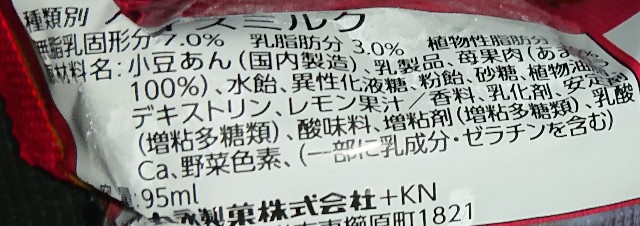 種類別 アイスミルク
無脂乳固形分 7.0% 乳脂肪分 3.0% 植物性脂肪分
原材料名:小豆あん(国内製造)、乳製品、苺果肉(あま
100%)、水飴、異性化液糖、粉飴、砂糖、植物油脂
デキストリン、レモン果汁/香料、乳化剤、安定剤
(増粘多糖類)、酸味料、増粘剤(増粘多糖類)、乳酸
Ca、野菜色素、(一部に乳成分・ゼラチンを含む)
容量:95ml
製菓株式会社+KN
市東櫛原町1821